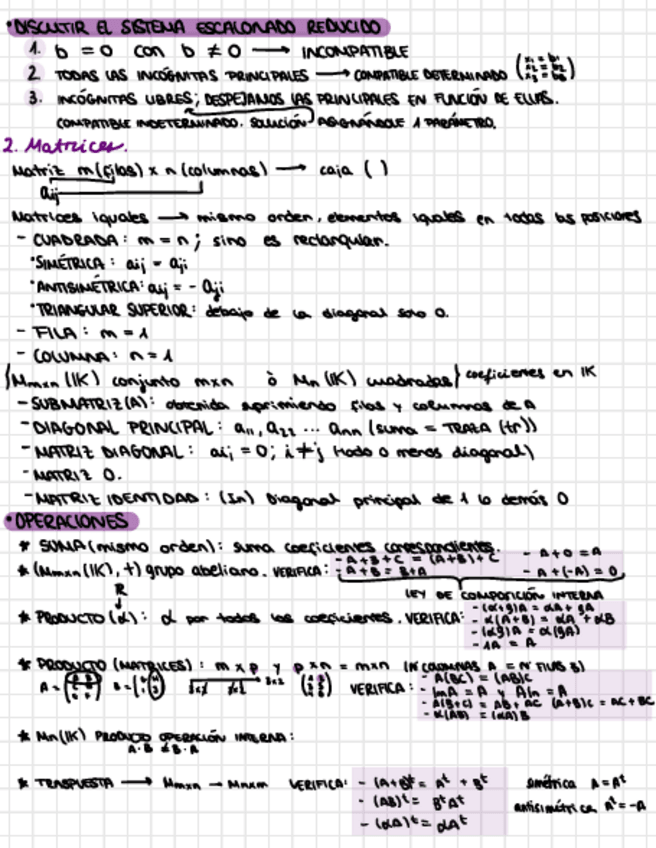 • DISCUTIR EL SISTEMA ESCALONADO REDUCIDO
1. b = 0 con b ≠ 0 → INCOMPATIBLE
2. TODAS LAS INCÓGNITAS PRINCIPALES → COMPATIBLE DETERMINADO (x₁ = b₁ x₂ = b₂ x₃ = b₃)
3. INCÓGNITAS LIBRES; DESPEJAMOS LAS PRINCIPALES EN FUNCIÓN DE ELLAS.
COMPATIBLE INDETERMINADO. SOLUCIÓN ASIGNÁNDOLE 1 PARÁMETRO.
2. Matrices.
Matriz m(filas) x n(columnas) → caja ( )
aij
Matrices iguales → mismo orden, elementos iguales en todas las posiciones
- CUADRADA: m = n; sino es rectangular.
• SIMÉTRICA: aij = aji
• ANTISIMÉTRICA: aij = - aji
• TRIANGULAR SUPERIOR: debajo de la diagonal solo 0.
- FILA: m = 1
- COLUMNA: n = 1
{Mmxn (IK) conjunto mxn ò Mn (IK) cuadradas} coeficientes en IK
- SUBMATRIZ (A): obtenida suprimiendo filas y columnas de A
- DIAGONAL PRINCIPAL: a₁₁, a₂₂ ... ann (suma = TRAZA (tr))
- MATRIZ DIAGONAL: aij = 0; i ≠ j (todo 0 menos diagonal)
- MATRIZ 0.
- MATRIZ IDENTIDAD: (In) Diagonal principal de 1 lo demás 0
• OPERACIONES
* SUMA (mismo orden): suma coeficientes correspondientes.
* (Mmxn (IK), +) grupo abeliano. VERIFICA: - A+B+C = (A+B)+C - A+0 = A
- A+B = B+A - A+(-A) = 0
LEY DE COMPOSICIÓN INTERNA
R
* PRODUCTO (α): α por todos los coeficientes. VERIFICA: - α(A+B) = αA + αB
- 1A = A
* PRODUCTO (MATRICES): m x p y p x n = mxn (Nº COLUMNAS A = Nº FILAS B)
A = B = VERIFICA: - A(BC) = (AB)C
- ImA = A y AIn = A
- A(B+C) = AB + AC (A+B)C = AC + BC
- α(AB) = (αA)B
* Mn (IK) PRODUCTO OPERACIÓN INTERNA:
A·B ≠ B·A
* TRASPUESTA → Mmxn → Mnxm VERIFICA: - (A+B)ᵗ = Aᵗ + Bᵗ simétrica A = Aᵗ
- (AB)ᵗ = BᵗAᵗ antisimétrica Aᵗ = -A
- (αA)ᵗ = αAᵗ